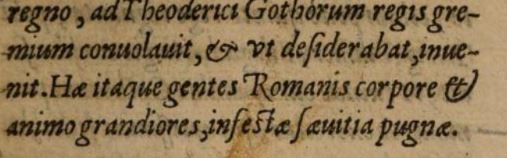 regno, ad Theoderici Gothorum regis gre-
mium conuolauit, & vt desiderabat, inue-
nit. Hæ itaque gentes Romanis corpore &
animo grandiores, infestæ sæuitia pugnæ.